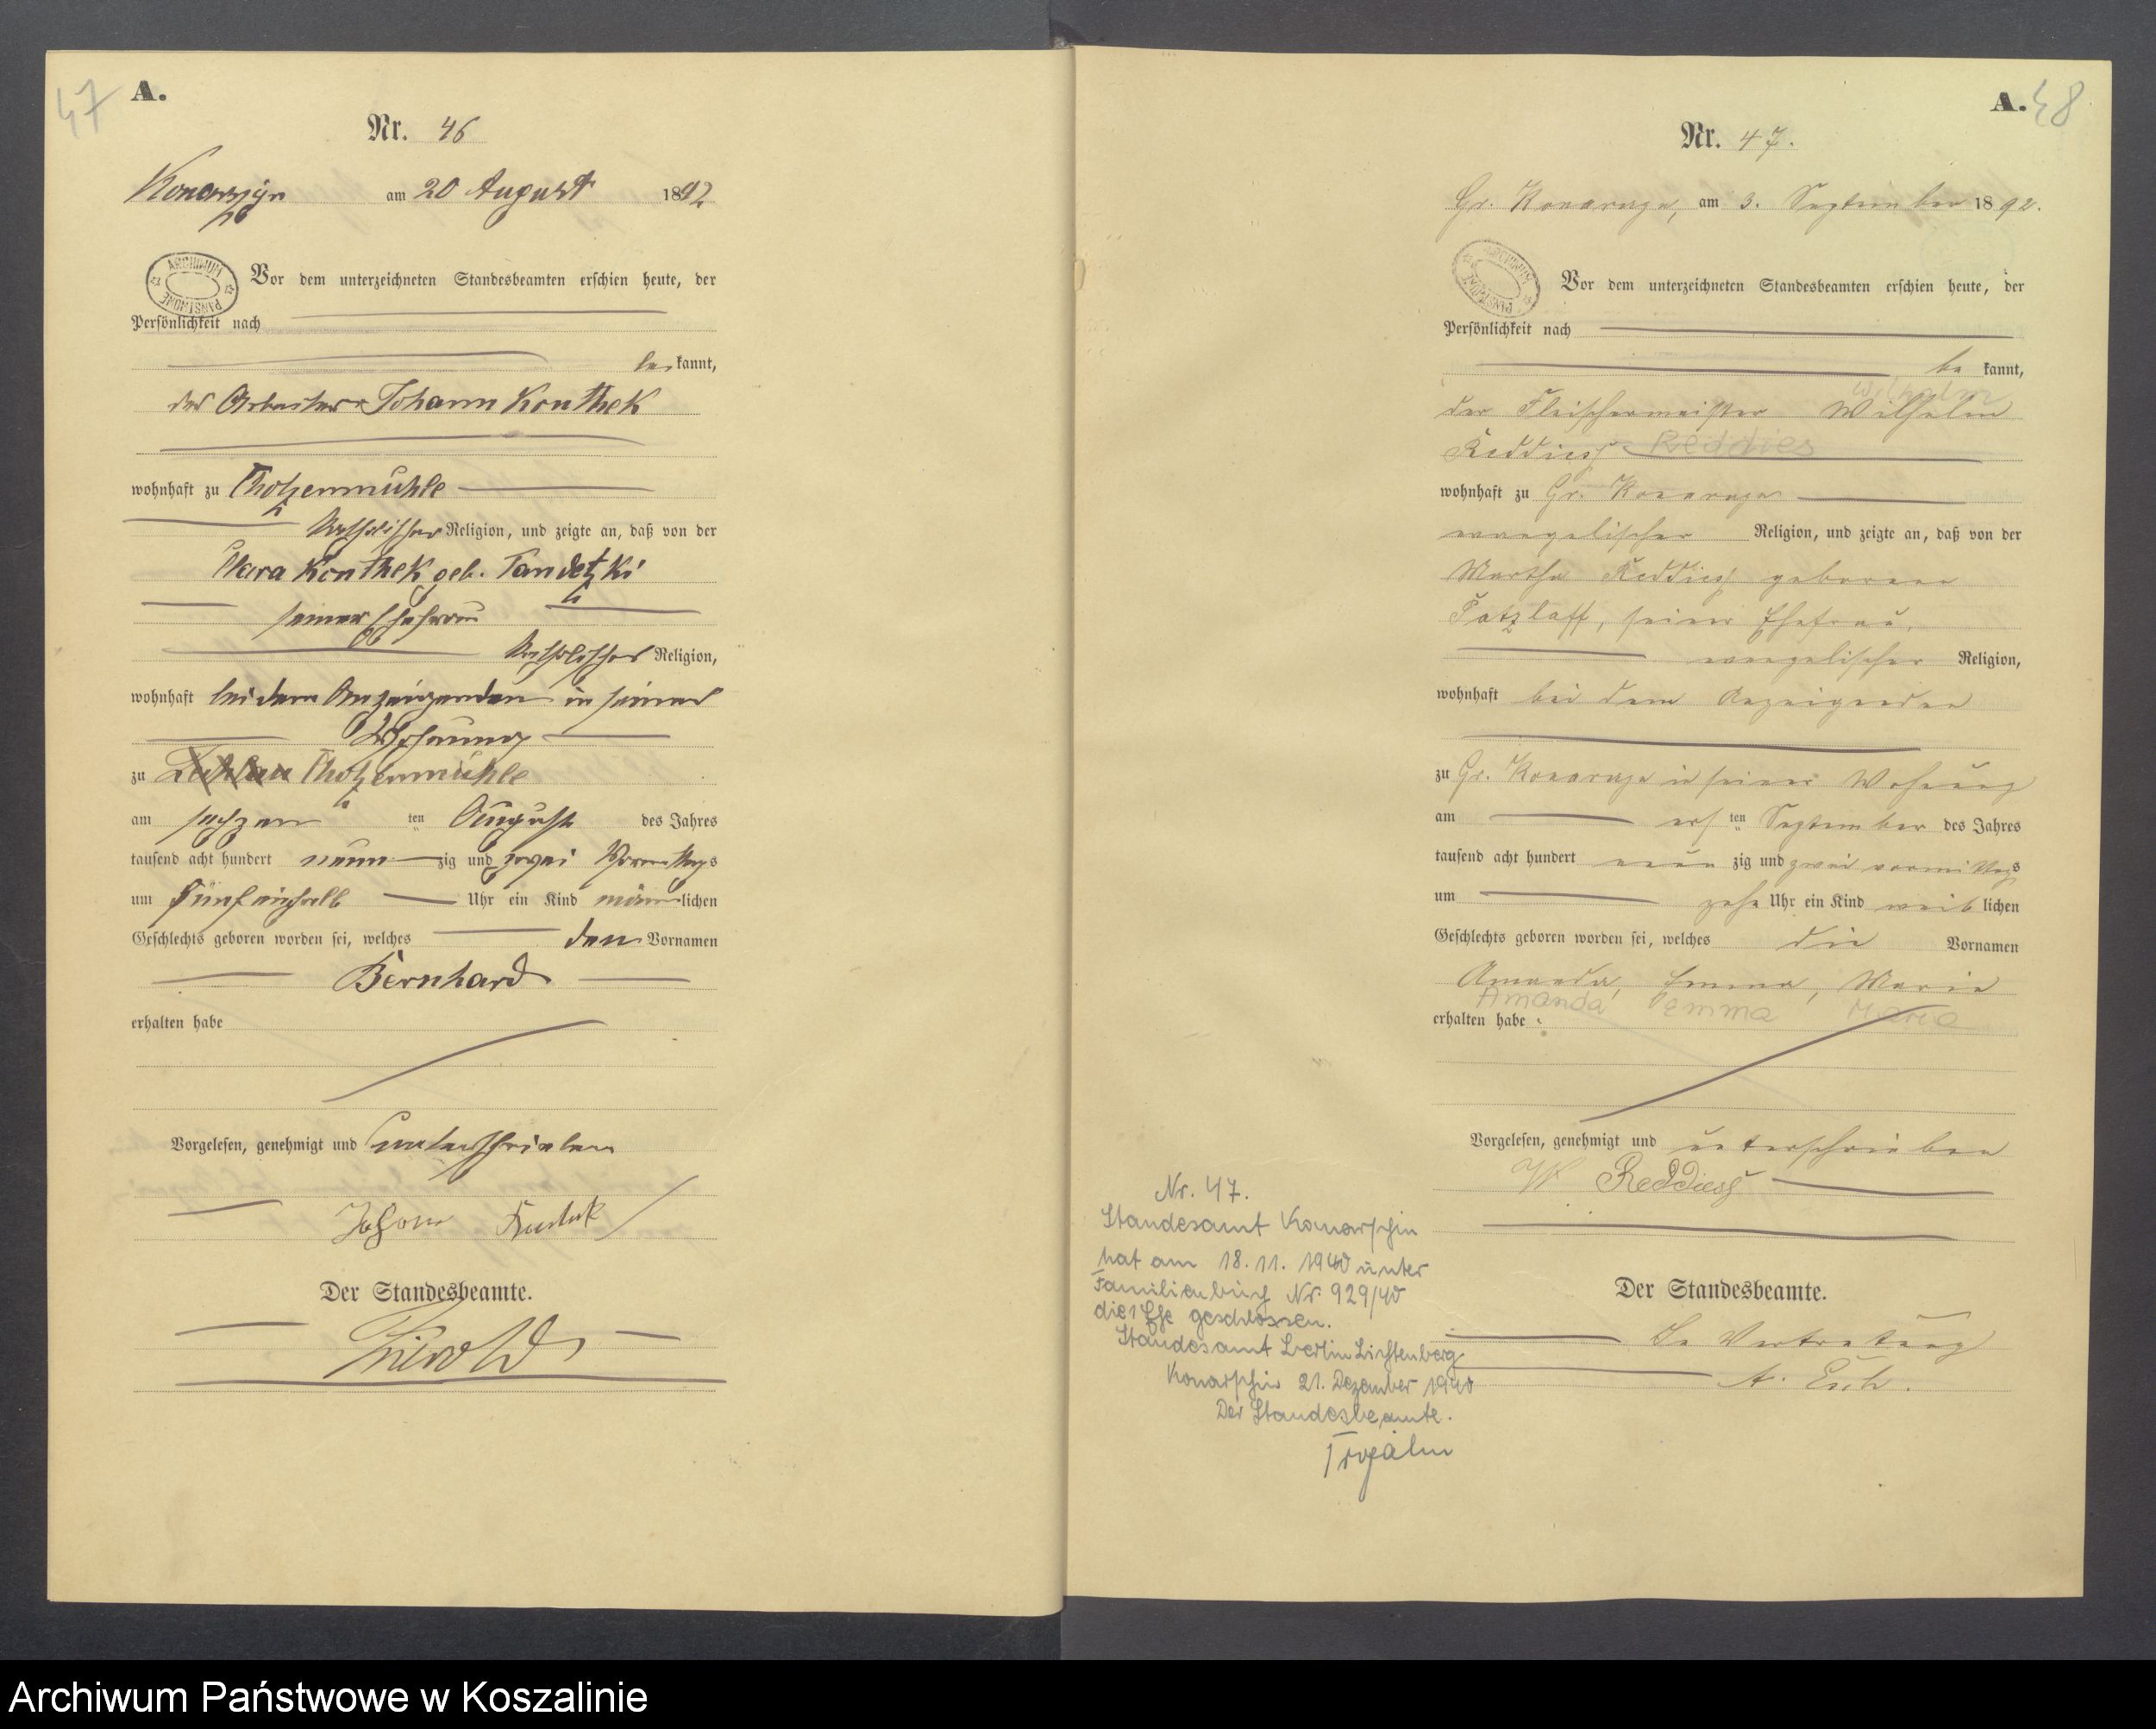 47
A.
Nr. 46
Konarszyn am 20 August 1892
ARCHIWUM PAŃSTWOWE
Vor dem unterzeichneten Standesbeamten erschien heute, der
Persönlichkeit nach
be kannt,
der Arbeiter Johann Konthek
wohnhaft zu Chotzenmühle
katholischer Religion, und zeigte an, daß von der
Clara Konthek geb. Tandetzki
seiner Ehefrau
katholischer Religion,
wohnhaft bei dem Anzeigenden in seiner
Wohnung
zu Chotzenmühle
am sechzehn ten August des Jahres
tausend acht hundert neun zig und zwei Vormittags
um fünfeinhalb Uhr ein Kind männlichen
Geschlechts geboren worden sei, welches den Vornamen
Bernhard
erhalten habe
Vorgelesen, genehmigt und unterschrieben
Johann
Der Standesbeamte.
A. 48
Nr. 47.
Gr. Konarszyn, am 3. September 1892.
ARCHIWUM PAŃSTWOWE
Vor dem unterzeichneten Standesbeamten erschien heute, der
Persönlichkeit nach
be kannt,
Wilhelm
der Fleischermeister Wilhelm
Reddiess Reddies
wohnhaft zu Gr. Konarszyn
evangelischer Religion, und zeigte an, daß von der
Martha Reddiess geborene
Patzlaff, seiner Ehefrau,
evangelischer Religion,
wohnhaft bei dem Anzeigenden
zu Gr. Konarszyn in seiner Wohnung
am ers ten September des Jahres
tausend acht hundert neun zig und zwei vormittags
um zehn Uhr ein Kind weiblichen
Geschlechts geboren worden sei, welches die Vornamen
Amanda, Emma, Marie
Amanda Emma Marie
erhalten habe
Vorgelesen, genehmigt und unterschrieben
W Reddiess
Der Standesbeamte.
In Vertretung
Nr. 47.
Standesamt Konarschin
hat am 18.11.1940 unter
Familienbuch Nr. 929/40
die 1 Ehe geschlossen.
Standesamt Berlin Lichtenberg
Konarschin 21. Dezember 1940
Der Standesbeamte.
Archiwum Państwowe w Koszalinie